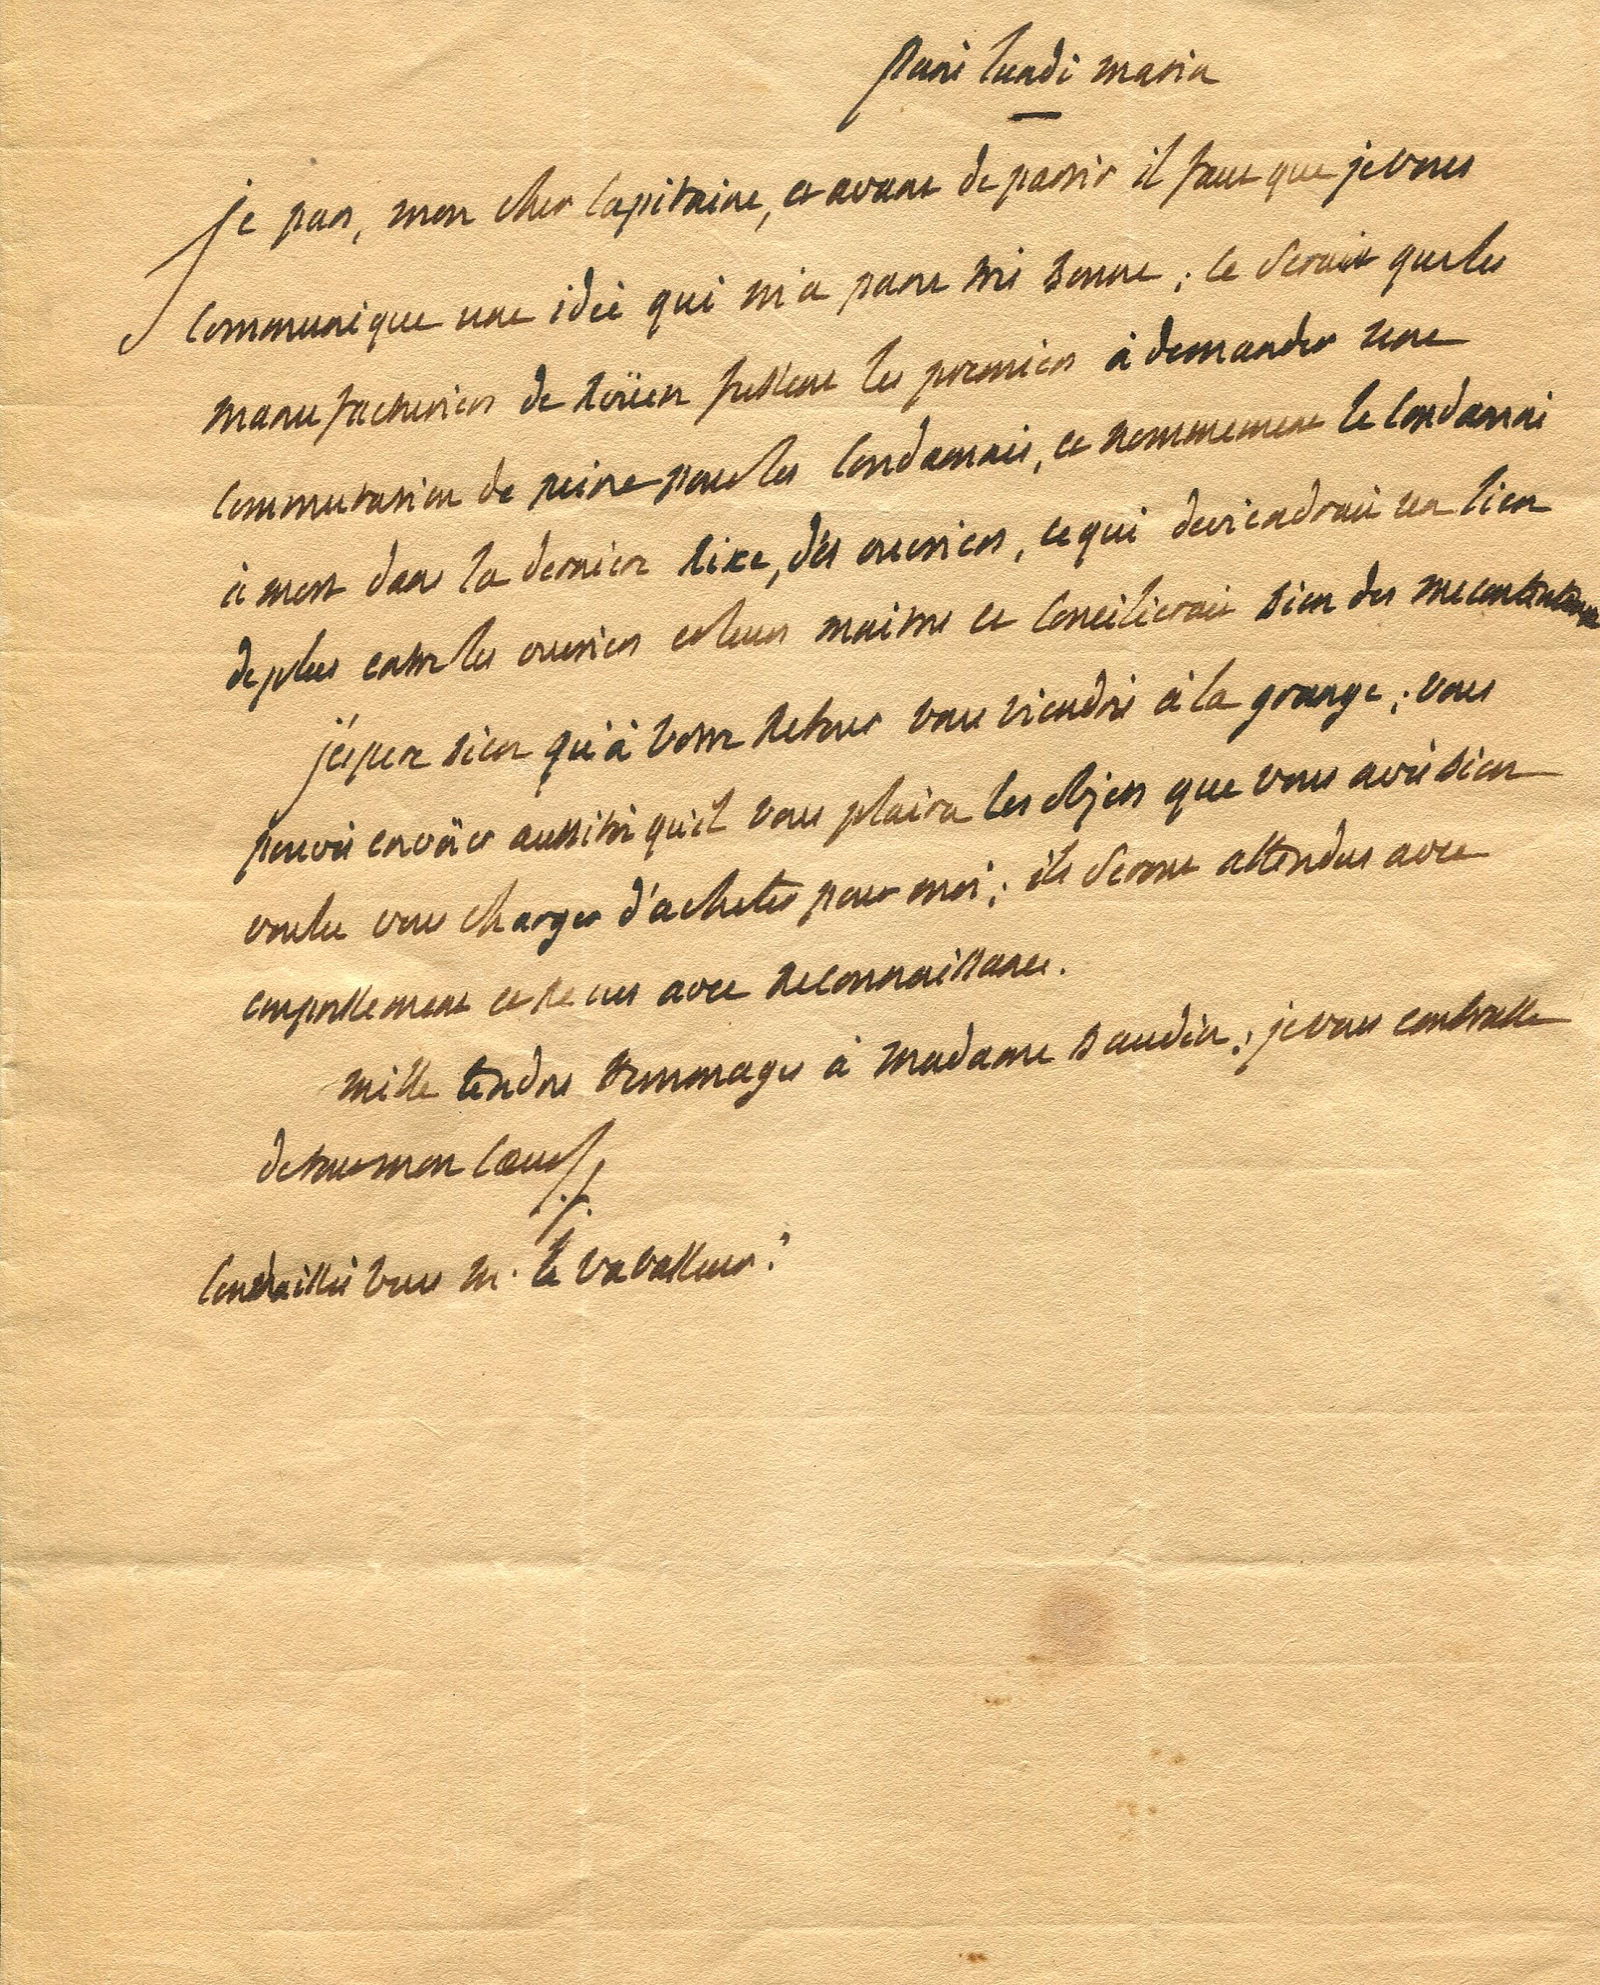 paris lundi matin
je pars, mon cher Capitaine, et avant de partir il faut que je vous
communique une idée qui m'a paru très bonne ; ce serait que les
manufacturiers de roüen fussent les premiers à demander une
commutation de peine pour les condamnés, et nommément le condamné
à mort dans la dernière rixe, des ouvriers, ce qui deviendrait un lien
de plus entre les ouvriers et leurs maitres et concilierait bien des
j'éspere bien qu'à votre retour vous viendrés à la grange ; vous
pouvés envöier aussitôt qu'il vous plaira les objets que vous avés bien
voulu vous charger d'acheter pour moi ; ils seront attendus avec
empressement et recus avec reconnaissance.
mille tendres hommages à Madame baudin ; je vous embrasse
de tout mon coeur
connaissés vous M. le vavasseur ?